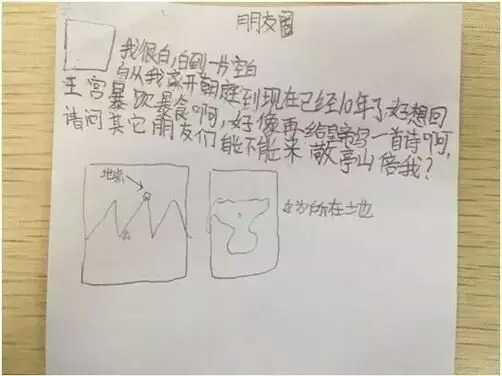 朋友圈
我很白,白到一片空白
自从我离开朝庭到现在已经10年了,好想回
王宫暴饮暴食啊,好像再给皇帝写一首诗啊,
请问其它朋友们能不能来敬亭山倍我?
地球
所在土地